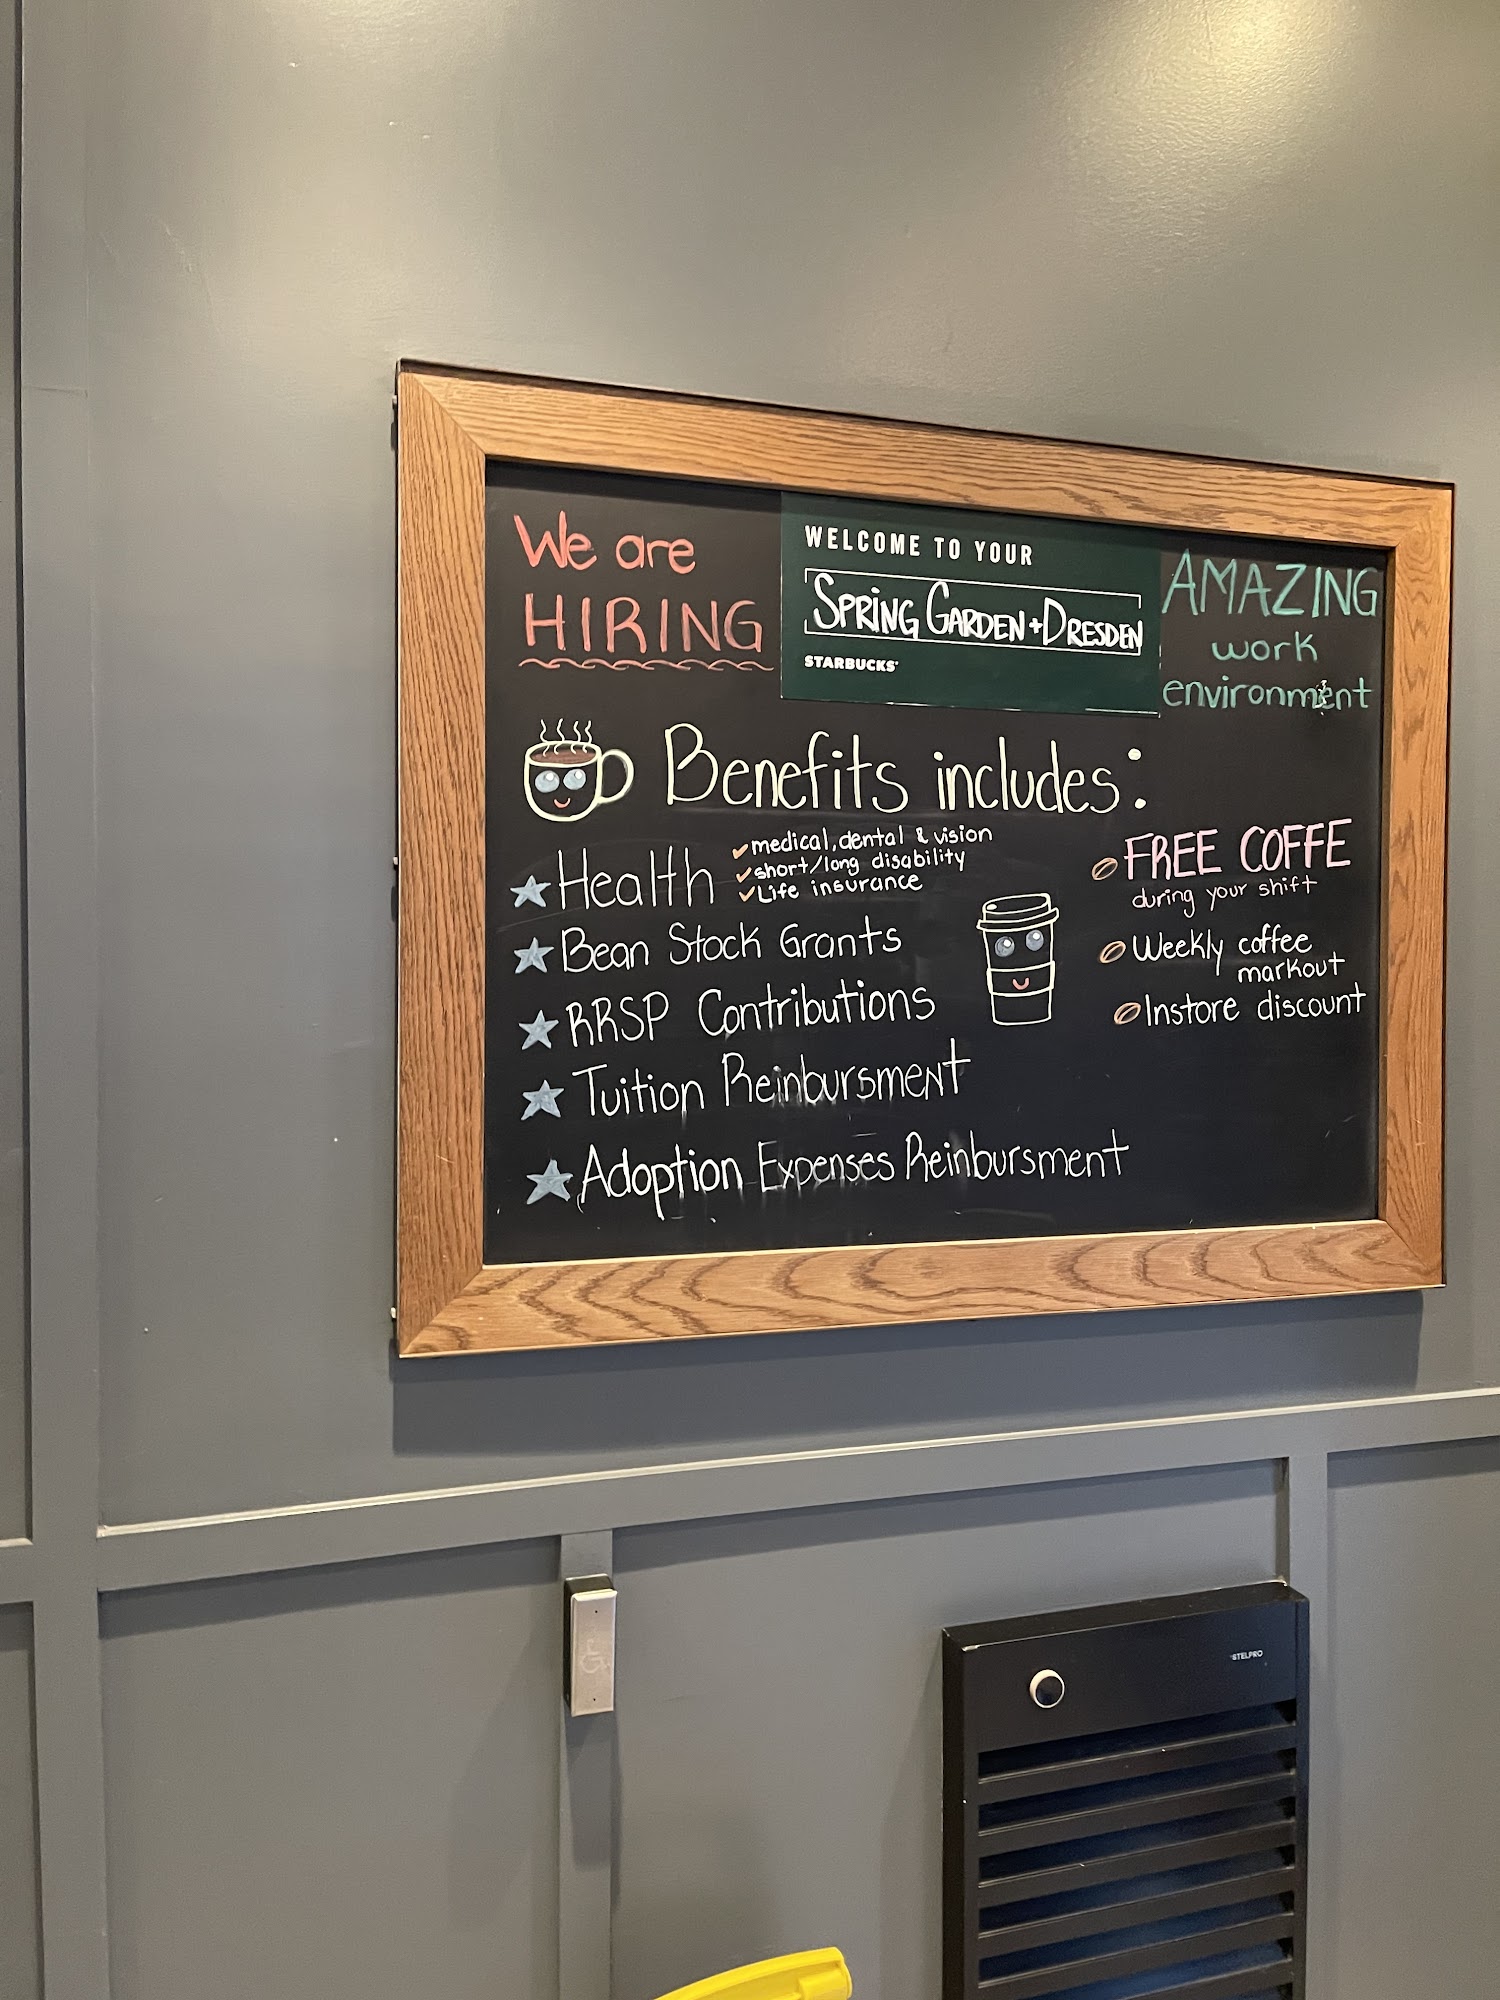 We are
HIRING
WELCOME TO YOUR
SPRING GARDEN + DRESDEN
STARBUCKS
AMAZING
work
environment
Benefits includes:
Health
medical, dental & vision
short/long disability
Life insurance
Bean Stock Grants
RRSP Contributions
Tuition Reinbursment
Adoption Expenses Reinbursment
FREE COFFE
during your shift
Weekly coffee
markout
Instore discount
STELPRO